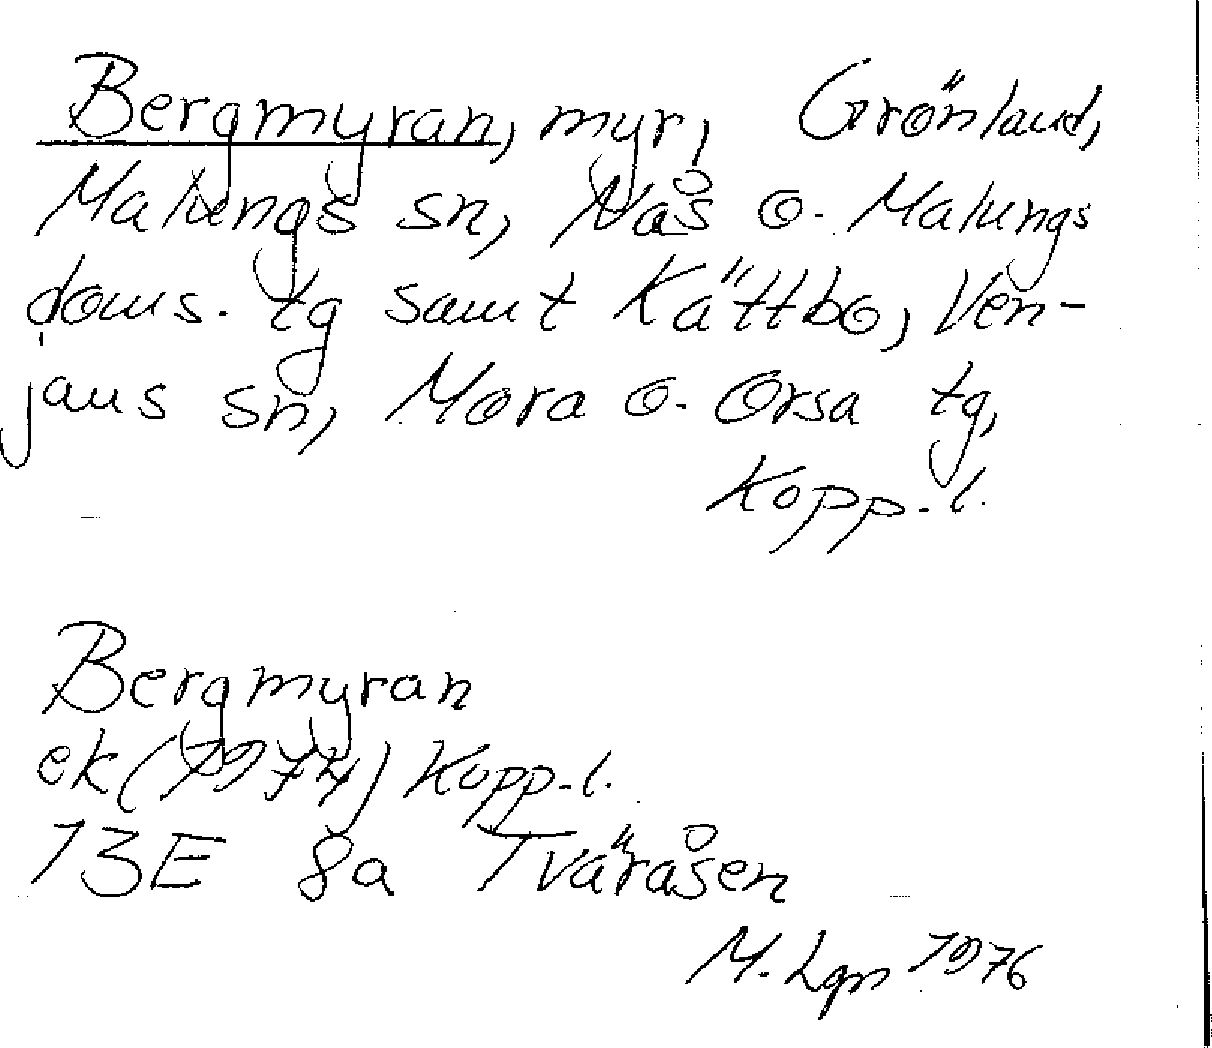 Bergmyran, myr, Grönland,
Malungs sn, Nås o. Malungs
doms. tg samt Kättbo, Ven-
jans sn, Mora o. Orsa tg,
Kopp.l.
Bergmyran
ek (1974) Kopp.l.
13E 8a Tväråsen
M. Lgn 1976